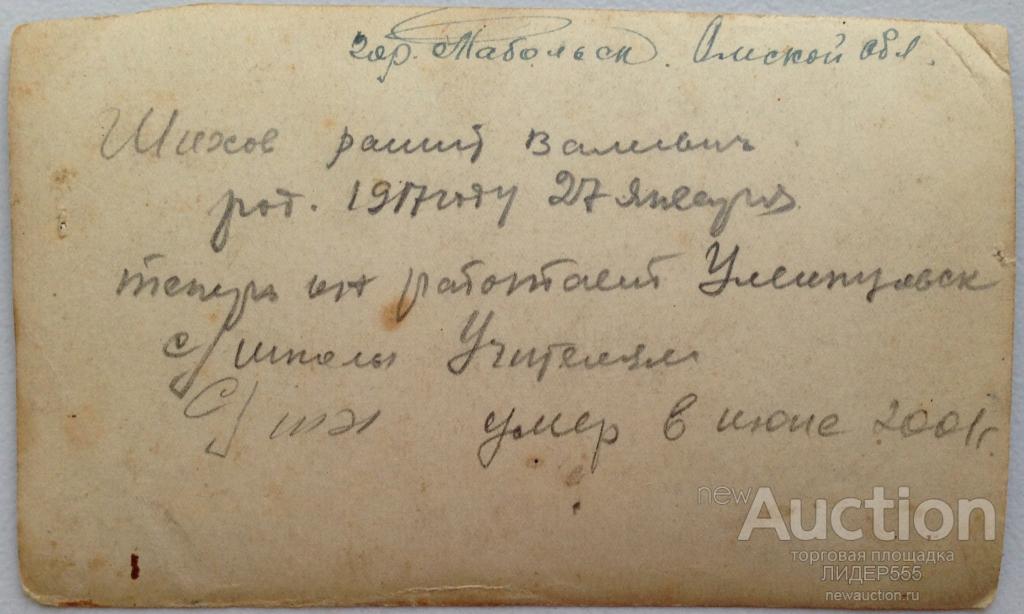 гор. Табольск. Омской обл.
Шихов рашит Валиевич
род. 1917 году 27 января
теперь он работает
с/школы Учителям
с/ умер в июне 2001г
newAuction
торговая площадка
ЛИДЕР555
newauction.ru